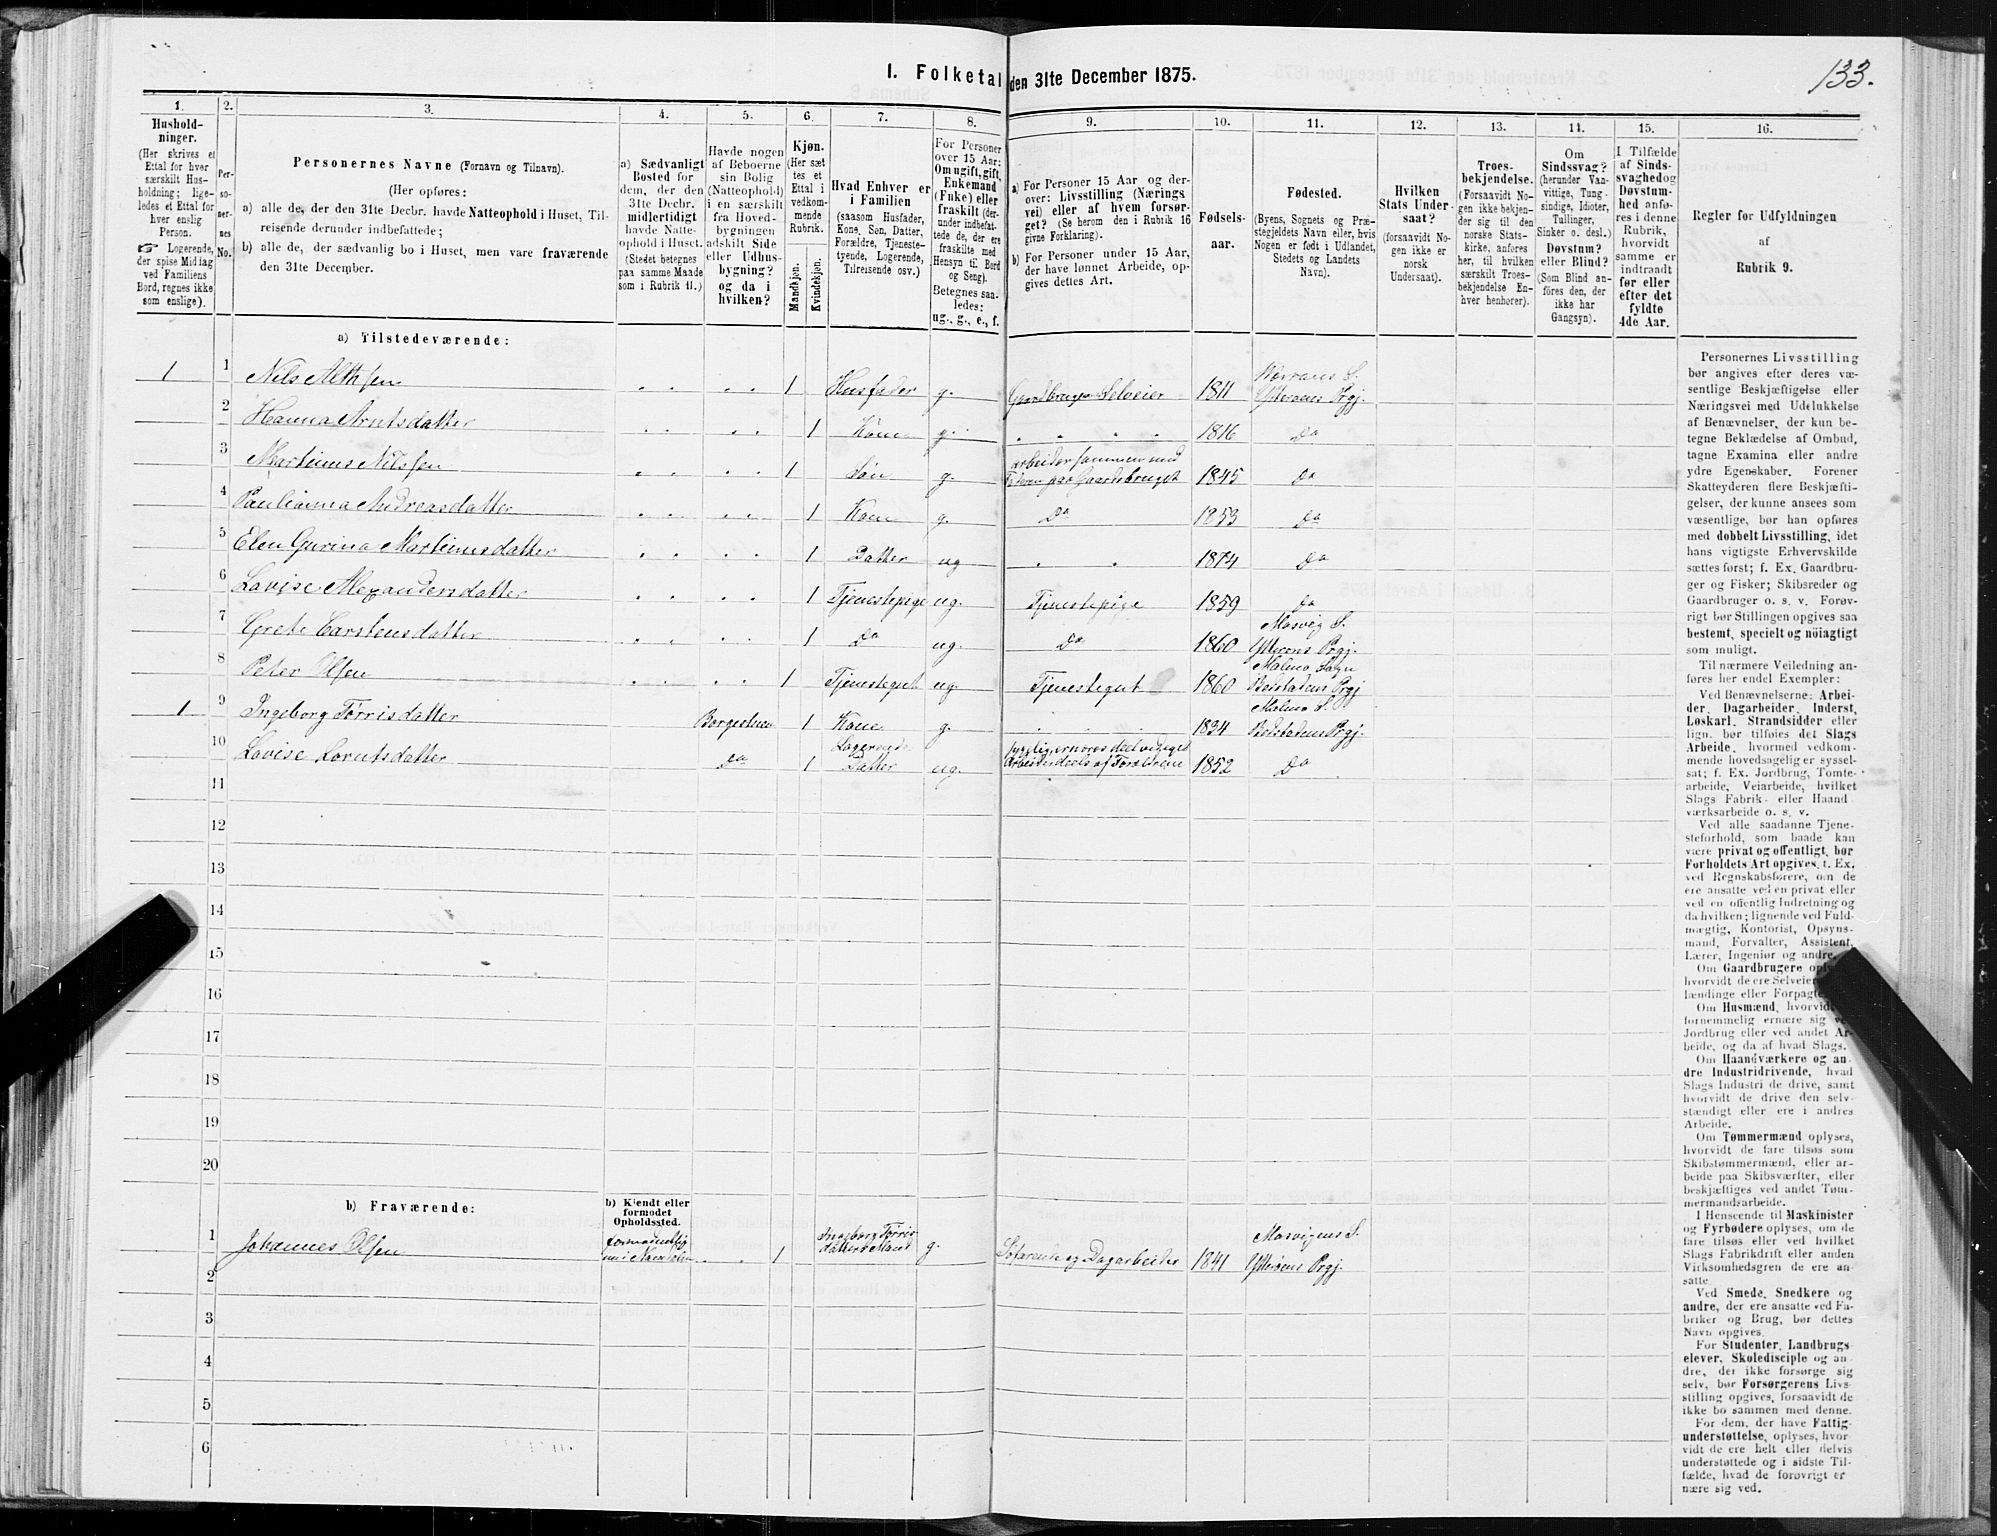 133.
I. Folketal den 31te December 1875.
1. 2. 3. 4. 5. 6. 7. 8. 9. 10. 11. 12. 13. 14. 15. 16.
Hushold-
ninger.
(Her skrives et
Ettal for hver
særskilt Hus-
holdning; lige-
ledes et Ettal for
hver enslig
Person.
☞ Logerende,
der spise Middag
ved Familiens
Bord, regnes ikke
som enslige).
Per-
so-
ner-
nes
No.
Personernes Navne (Fornavn og Tilnavn).
(Her opføres:
a) alle de, der den 31te Decbr. havde Natteophold i Huset, Til-
reisende derunder indbefattede;
b) alle de, der sædvanlig bo i Huset, men vare fraværende
den 31te December.
a) Sædvanligt
Bosted for
dem, der den
31te Decbr.
midlertidigt
havde Natte-
ophold i Huset.
(Stedet betegnes
paa samme Maade
som i Rubrik 11.)
Havde nogen
af Beboerne
sin Bolig
(Natteophold)
i en særskilt
fra Hoved-
bygningen
adskilt Side
eller Udhus-
bygning?
og da i
hvilken?
Kjøn.
(Her sæt
tes et
Ettal i
vedkom-
mende
Rubrik.
Mandkjøn.
Kvindekjøn.
Hvad Enhver er
i Familien
(saasom Husfader,
Kone, Søn, Datter,
Forældre, Tjeneste-
tyende, Logerende,
Tilreisende osv.)
For Personer
over 15 Aar:
Om ugift, gift,
Enkemand
(Enke) eller
fraskilt (der-
under indbefat-
tede de, der ere
fraskilte med
Hensyn til Bord
og Seng).
Betegnes saa-
ledes:
ug., g., e., f.
a) For Personer 15 Aar og der-
over: Livsstilling (Nærings
vei) eller af hvem forsør-
get? (Se herom den i Rubrik 16
givne Forklaring).
b) For Personer under 15 Aar,
der have lønnet Arbeide, op-
gives dettes Art.
Fødsels-
aar.
Fødested.
(Byens, Sognets og Præ-
stegjeldets Navn eller, hvis
Nogen er født i Udlandet,
Stedets og Landets
Navn).
Hvilken
Stats Under-
saat?
(forsaavidt No-
gen ikke er
norsk
Undersaat).
Troes-
bekjendelse.
(Forsaavidt No-
gen ikke bekjen-
der sig til den
norske Stats-
kirke, anføres
her, til hvilken
særskilt Troes-
bekjendelse En-
hver henhører).
Om
Sindssvag?
(herunder Van-
vittige, Tung-
sindige, Idioter,
Tullinger,
Sinker o. desl.)
Døvstum?
eller Blind?
(Som Blind an-
føres den, der
ikke har
Gangsyn).
I Tilfælde
af Sinds-
svaghed og
Døvstum-
hed anfø-
res i denne
Rubrik,
hvorvidt
samme er
indtraadt
før eller
efter det
fyldte
4de Aar.
Regler før Udfyldningen
af
Rubrik 9.
a) Tilstedeværende:
1 1 Nils Althsen 1 Husfader g. Gaardbruger Selveier 1811 Ytterøens Prgj.
2 Hanna Arntsdatter 1 Kone g. 1816 Do
3 Martinus Nilssen 1 Søn g. Arbeider sammen med Faderen paa Gaardsbruget 1845 Do
4 Paulianna Andreasdatter 1 Kone g. Do 1853 Do
5 Elen Gurina Martinusdatter 1 Datter ug 1874 Do
6 Lovise Alexandersdatter 1 Tjenestepige ug. Tjenestepige 1859 Do
7 Grete Carstensdatter 1 Do ug. Do 1860 Mosvig S. Ytterøens Prgj.
8 Peter Olsen 1 Tjenestegut ug. Tjenestegut 1860 Malmo Sogn Bedstadens Prgj
1 9 Ingeborg Tørrisdatter Borgestuen 1 Kone g. 1834 Malmo S. Bedstadens Prgj.
10 Lovise Lorntsdatter Do 1 Logerende Datter ug. Arbeide deels af Forældrene 1852 Do
11
12
13
14
15
16
17
18
19
20
b) Fraværende:
b) Kjendt eller
formodet
Opholdssted.
1 Johannes Olsen 1 Ingeborg Tørrisdatters Mand g. Søfarende og Dagarbeider 1841 Mosvigens S. Ytterøens Prgj.
2
3
4
5
6
Personernes Livsstilling
bør angives efter deres væ-
sentlige Beskjæftigelse eller
Næringsvei med Udelukkelse
af Benævnelser, der kun be-
tegne Beklædelse af Ombud,
tagne Examina eller andre
ydre Egenskaber. Forener
Skatteyderen flere Beskjæfti-
gelser, der kunne ansees som
væsentlige, bør han opføres
med dobbelt Livsstilling, idet
hans vigtigste Erhvervskilde
sættes først; f. Ex. Gaardbru-
ger og Fisker; Skibsreder og
Gaardbruger o. s. v. Forøv-
rigt bør Stillingen opgives saa
bestemt, specielt og nöiagtigt
som muligt.
Til nærmere Veiledning an-
føres her endel Exempler:
Ved Benævnelserne: Arbei-
der, Dagarbeider, Inderst,
Løskarl, Strandsidder eller
lign. bør tilføies det Slags
Arbeide, hvormed vedkom-
mende hovedsagelig er syssel-
sat; f. Ex. Jordbrug, Tomte-
arbeide, Veiarbeide, hvilket
Slags Fabrik- eller Haand-
værksarbeide o. s. v.
Ved alle saadanne Tjene-
steforhold, som baade kan
være privat og offentligt, bør
Forholdets Art opgives, t. Ex.
ved Regnskabsførere, om de
ere ansatte ved en privat eller
ved en offentlig Indretning og
da hvilken; lignende ved Fuld-
mægtig, Kontorist, Opsyns-
mand, Forvalter, Assistent,
Lærer, Ingeniør og andre.
Om Gaardbrugere
hvorvidt de ere Selveiere
lændinge eller
Om Husmænd,
fornemmelig ernære sig
Jordbrug eller ved andet Ar-
beide, og da af hvad Slags.
Om Haandværkere og an-
dre Industridrivende, hvad
Slags Industri de drive, samt
hvorvidt de drive den selv-
stændigt eller ere i andres
Arbeide.
Om Tømmermænd oplyses,
hvorvidt de fare tilsøs som
Skibstømmermænd, eller ar-
beide paa Skibsværfter, eller
beskjæftiges ved andet Tøm-
mermandsarbeide.
I Henseende til Maskinister
og Fyrbødere oplyses, om de
fare tilsøs eller ved hvilket
Slags Fabrikdrift eller anden
Virksomhedsgren de ere an-
satte.
Ved Smede, Snedkere og
andre, der ere ansatte ved Fa-
briker og Brug, bør dettes
Navn opgives.
For Studenter, Landbrugs-
elever, Skoledisciple og an-
dre, der ikke forsørge sig
selv, bør Forsørgerens Livs-
stilling opgives, forsaavidt de
ikke bo sammen med denne.
For dem, der have Fattig-
understøttelse, oplyses, hvor-
vidt de ere helt eller delvis
understøttede og i sidste Til-
fælde, hvad de forøvrigt er-
nære sig ved.